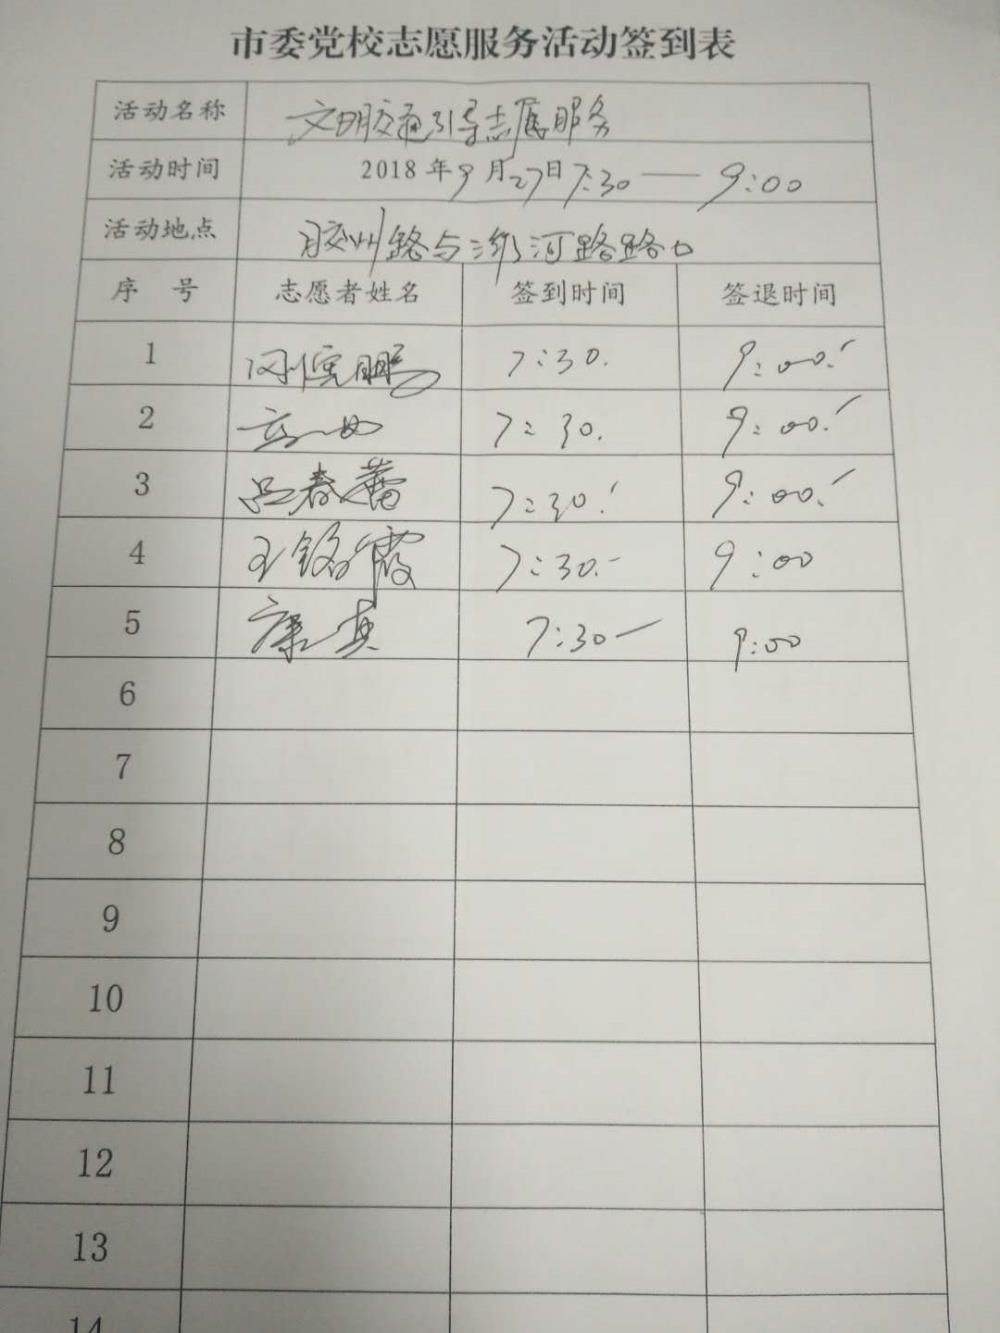 市委党校志愿服务活动签到表
活动名称 文明交通引导志愿服务
活动时间 2018年9月27日7:30——9:00
活动地点 胶州路与潍河路路口
序 号 志愿者姓名 签到时间 签退时间
1 7:30. 9:00.
2 7:30. 9:00.
3 吕春蕾 7:30. 9:00.
4 王铭霞 7:30. 9:00
5 康真 7:30 9:00
6
7
8
9
10
11
12
13
14